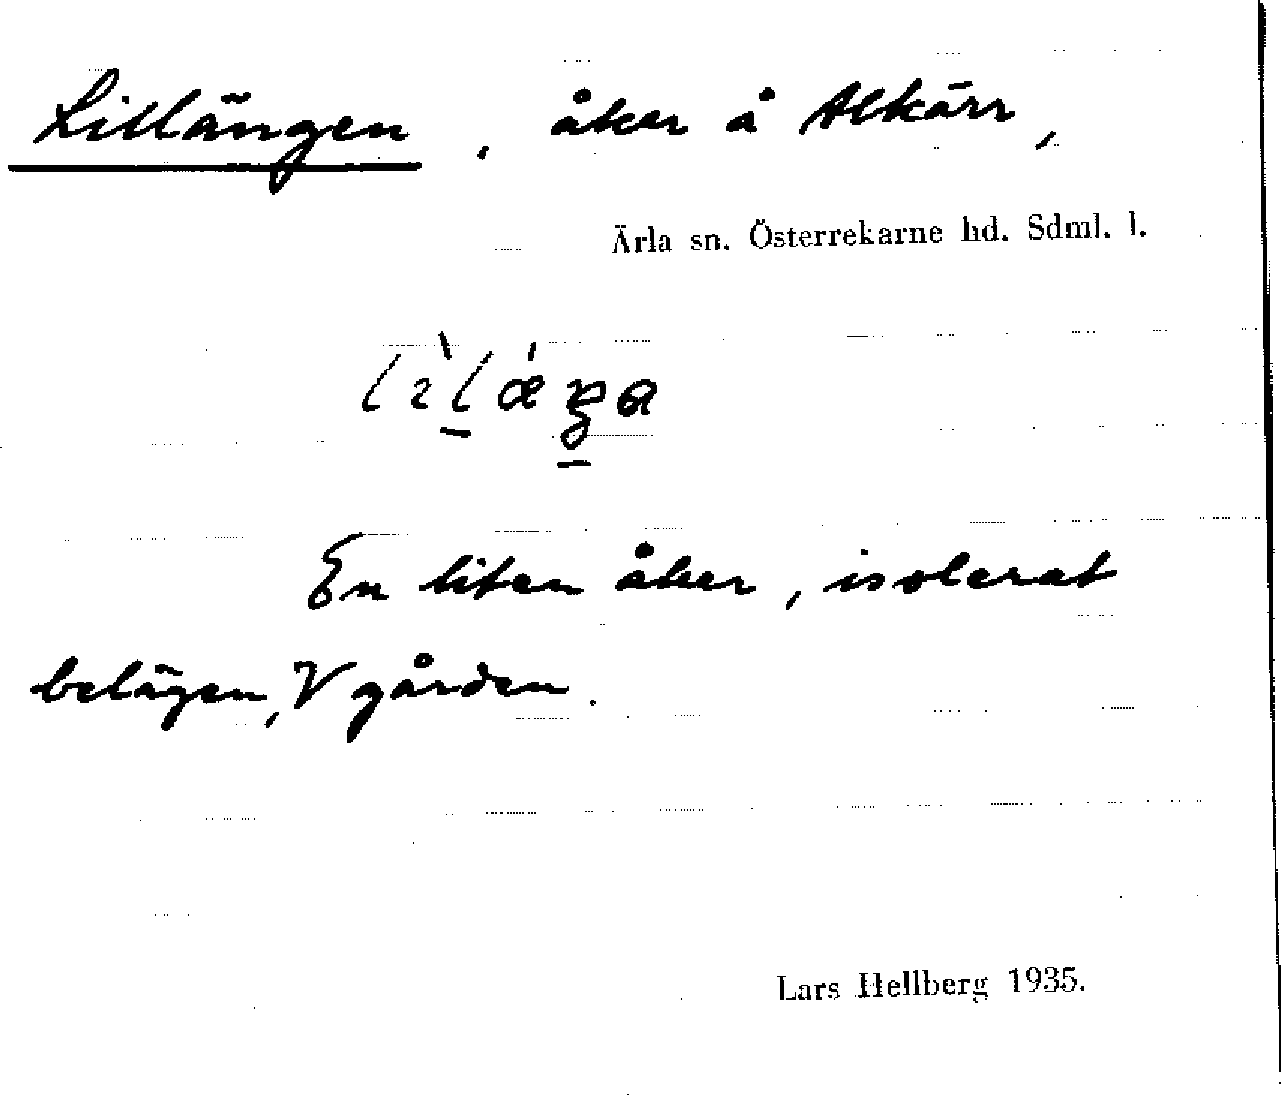 Lillängen, åker å Alkärr,
Ärla sn. Österrekarne hd. Sdml. l.
En liten åker, isolerat
belägen, V gården.
Lars Hellberg 1935.